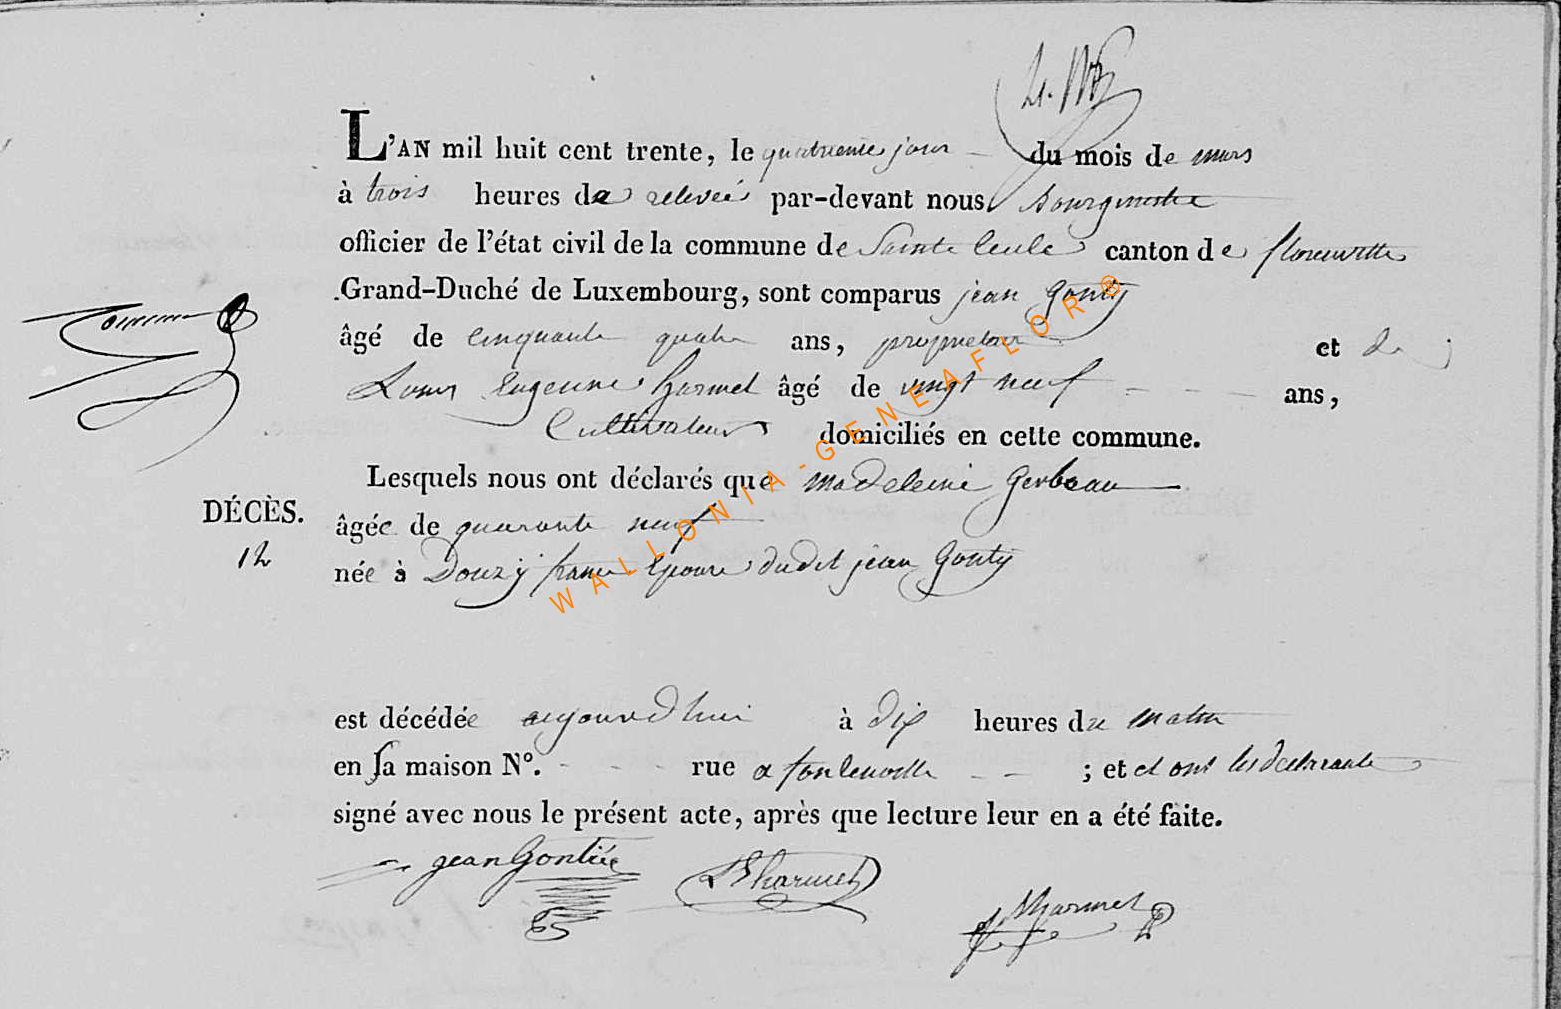 L'AN mil huit cent trente, le quatrieme jour du mois de mars
à trois heures de relevée par-devant nous Bourgmestre
officier de l'état civil de la commune de Sainte Cecile canton de florenville
Grand-Duché de Luxembourg, sont comparus jean Gonty
âgé de cinquante quatre ans, proprietaire et de
Louis Eugenne harmel âgé de vingt neuf ans,
Cultivateur domiciliés en cette commune.
Lesquels nous ont déclarés que madeleine Gerbeau
DÉCÈS.
12
âgée de quarante neuf
née à Douzy france Epouse dudit jean Gonty
est décédée aujourd'hui à dix heures du matin
en sa maison N°. rue a fontenoille ; et et ont les declarants
signé avec nous le présent acte, après que lecture leur en a été faite.
jean Gontié LEharmel harmel
WALLONIA-GENEAFLOR®